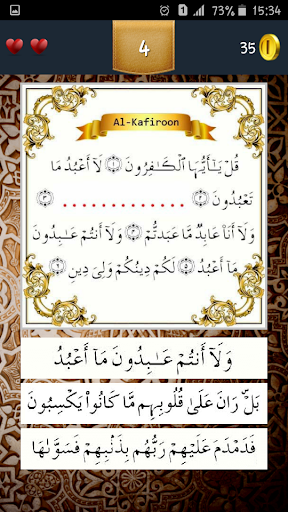 73% 15:34
4
35
Al-Kafiroon
قُلْ يَـٰٓأَيُّهَا ٱلْكَـٰفِرُونَ ۝١ لَآ أَعْبُدُ مَا
تَعْبُدُونَ ۝٢ ............. ۝٣
وَلَآ أَنَا۠ عَابِدٌ مَّا عَبَدتُّمْ ۝٤ وَلَآ أَنتُمْ عَـٰبِدُونَ
مَآ أَعْبُدُ ۝٥ لَكُمْ دِينُكُمْ وَلِىَ دِينِ ۝٦
وَلَآ أَنتُمْ عَـٰبِدُونَ مَآ أَعْبُدُ
بَلْ رَانَ عَلَىٰ قُلُوبِهِم مَّا كَانُوا۟ يَكْسِبُونَ
فَدَمْدَمَ عَلَيْهِمْ رَبُّهُم بِذَنۢبِهِمْ فَسَوَّىٰهَا